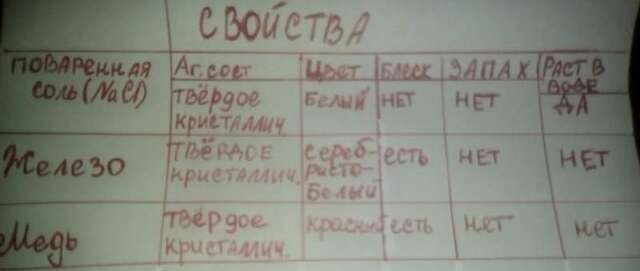 СВОЙСТВА
ПОВАРЕННАЯ СОЛЬ (NaCl)
Аг. сост Цвет БЛЕСК ЗАПАХ РАСТ В ВОДЕ
ТВЁРДОЕ КРИСТАЛЛИЧ. БЕЛЫЙ НЕТ НЕТ ДА
Железо ТВЁРДОЕ КРИСТАЛЛИЧ. Сереб-ристо-Белый есть НЕТ НЕТ
Медь ТВЁРДОЕ КРИСТАЛЛИЧ. красный есть нет нет